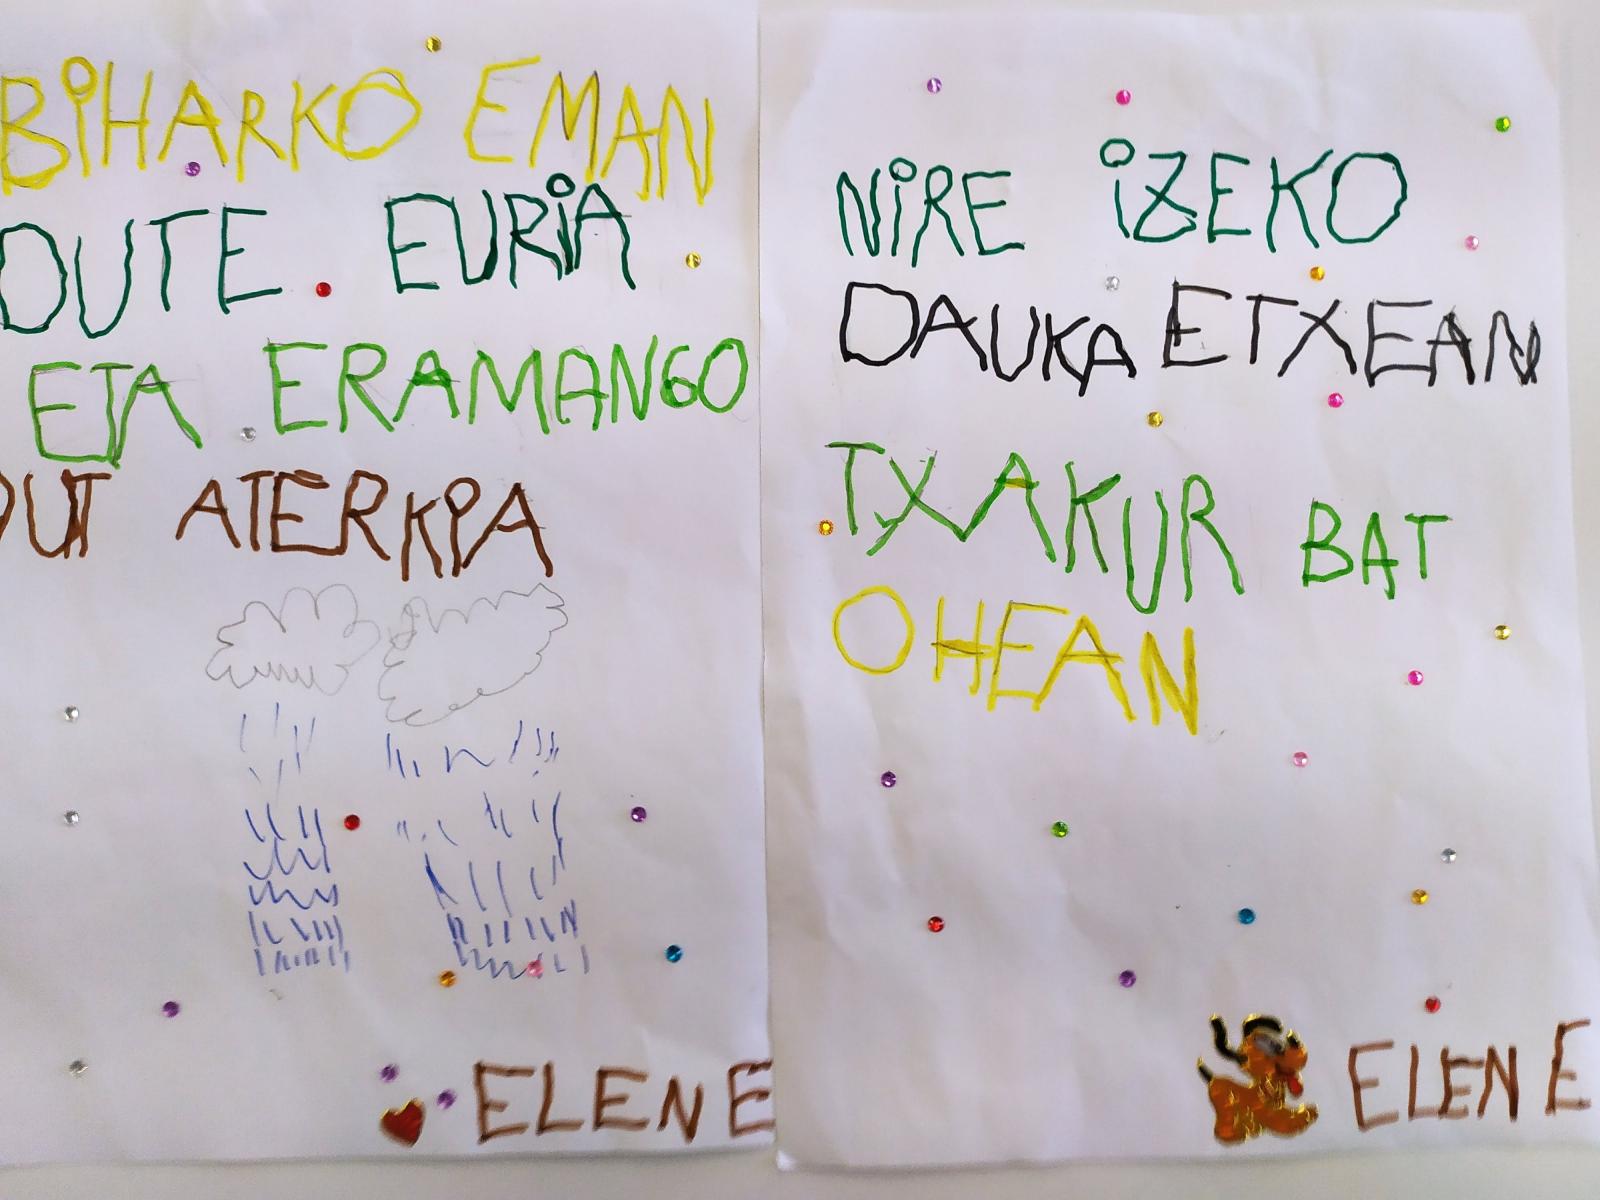 BIHARKO EMAN
DUTE EURIA
ETA ERAMANGO
DUT ATERKIA
ELENE
NIRE IZEKO
DAUKA ETXEAN
TXAKUR BAT
OHEAN
ELENE